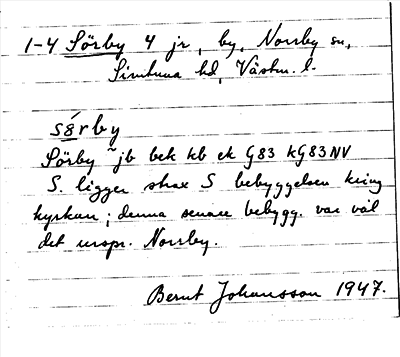 1-4 Sörby 4 jr, by, Norrby sn,
Simtuna hd, Västm. l.
sö́rby
Sörby ~ jb bek kb ek G83 kG83NV
S. ligger strax S bebyggelsen kring
kyrkan; denna senare bebygg. var väl
det urspr. Norrby.
Bernt Johansson 1947.